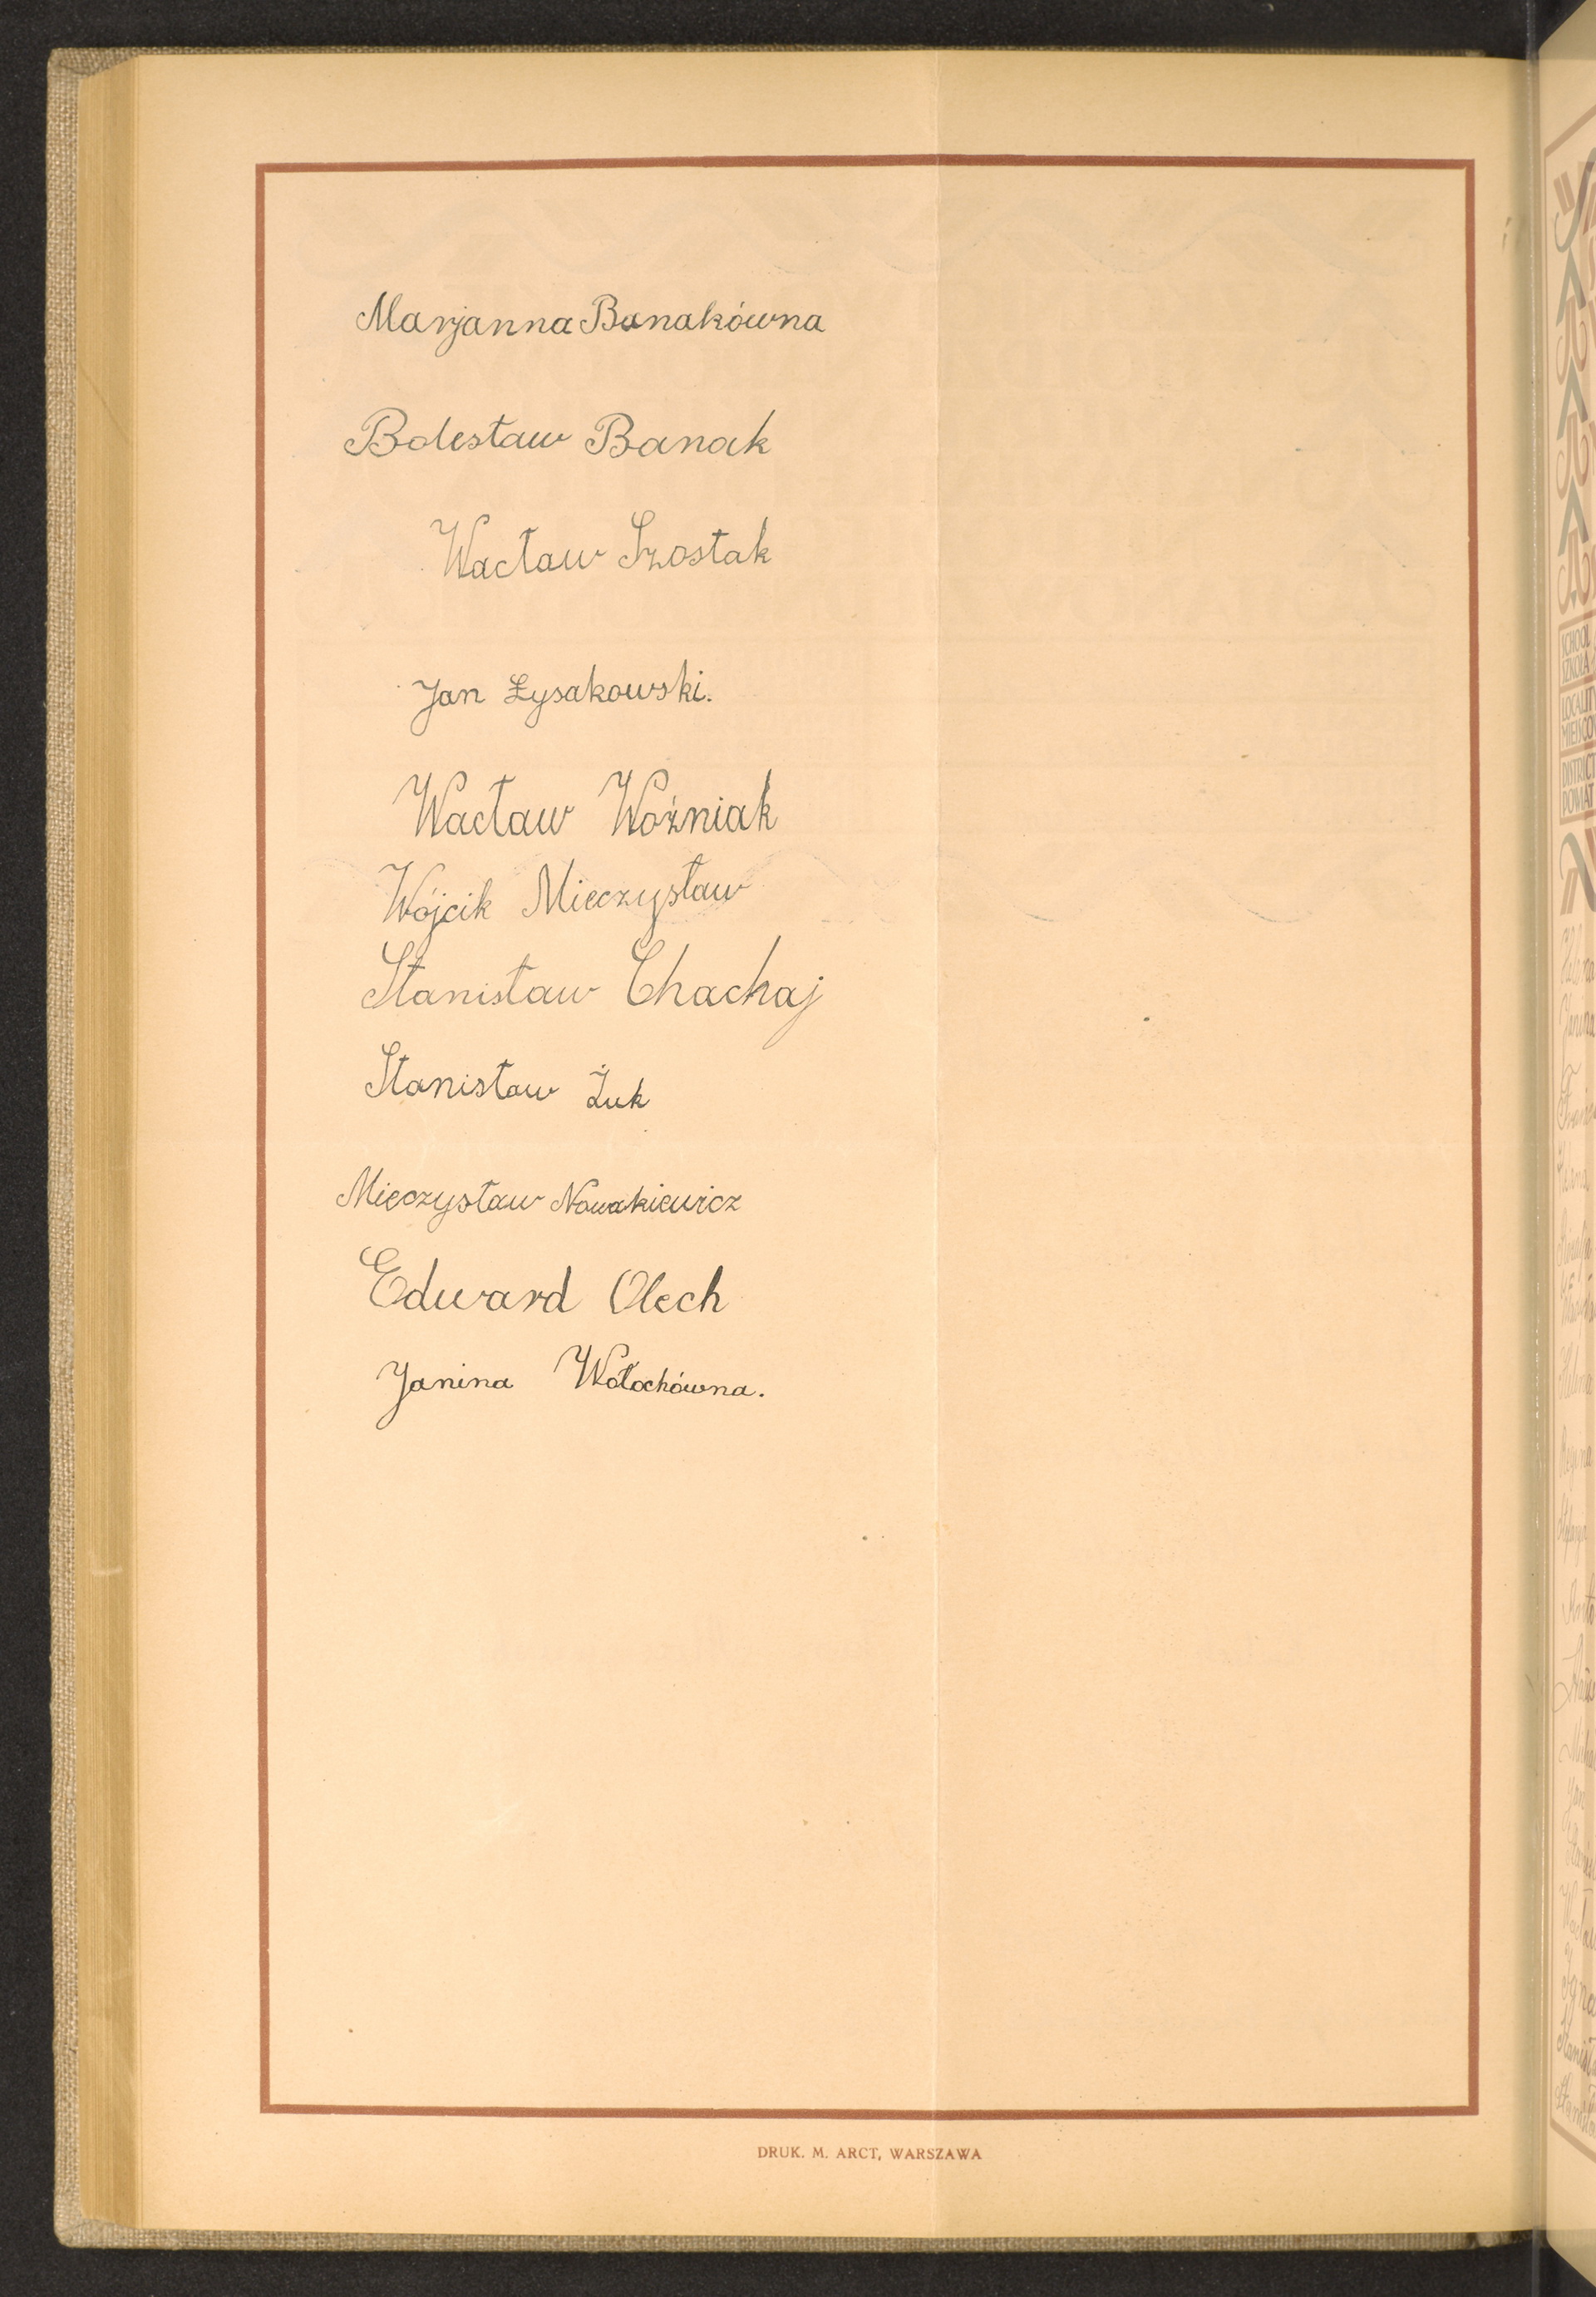 Marjanna Banakówna
Bolesław Banak
Wacław Szostak
Jan Łysakowski.
Wacław Woźniak
Wójcik Mieczysław
Stanisław Chachaj
Stanisław Żuk
Mieczysław Nowakiewicz
Edward Olech
Janina Wołochówna.
DRUK. M. ARCT, WARSZAWA
SCHOOL
SZKOŁA
LOCALITY
DISTRICT
POWIAT